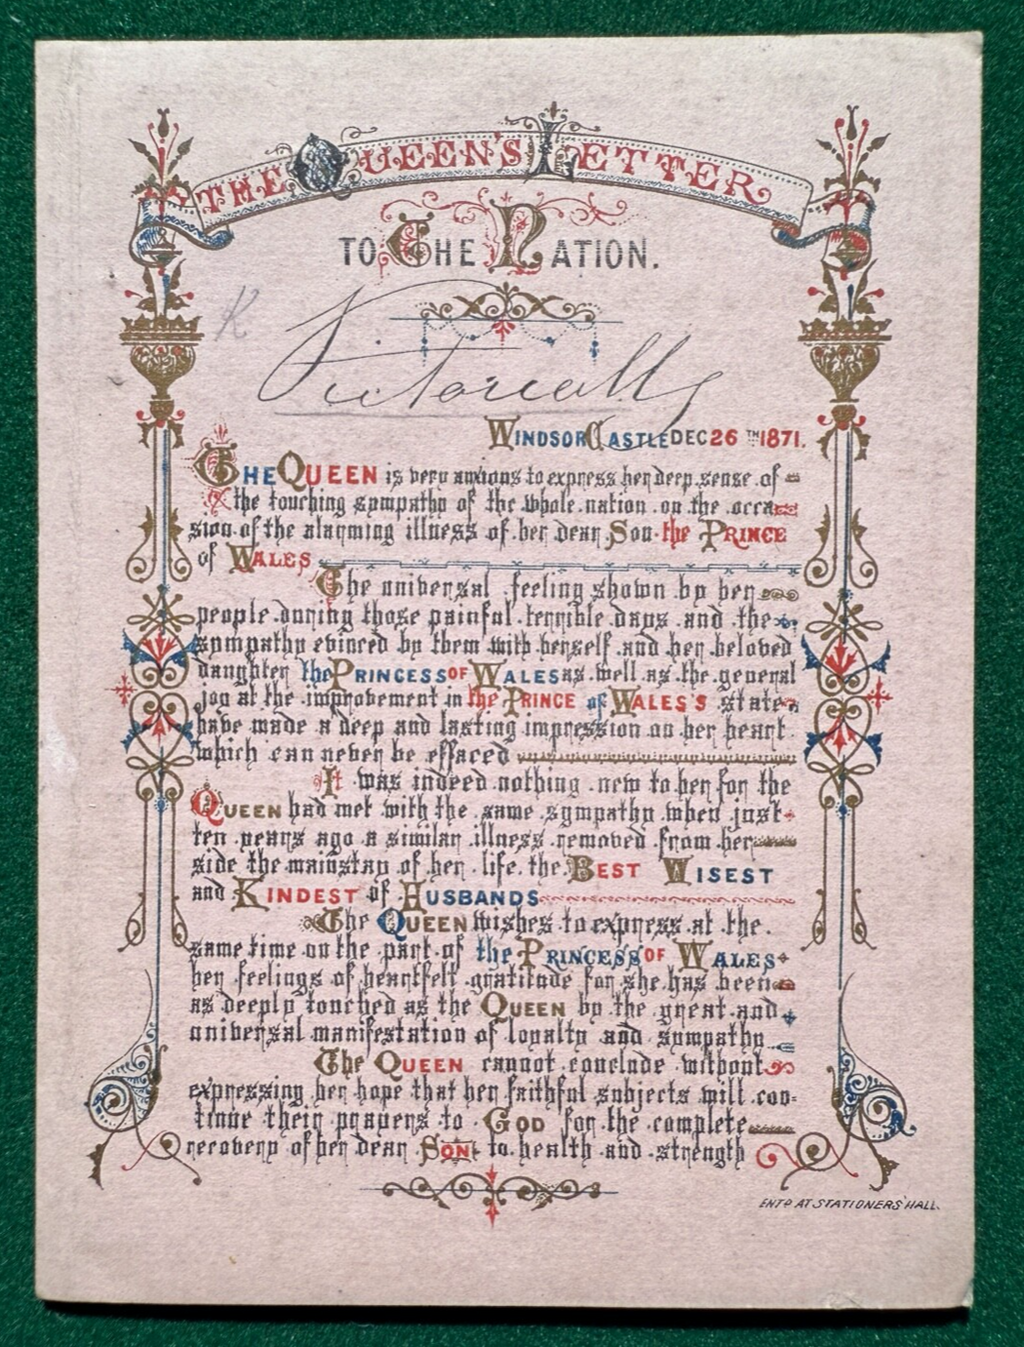 THE QUEEN'S LETTER
TO THE NATION.
R
Victoria
WINDSOR CASTLE DEC 26TH 1871.
THE QUEEN is very anxious to express her deep sense of
the touching sympathy of the whole nation on the occa
sion of the alarming illness of her dear Son the PRINCE
of WALES
The universal feeling shown by her
people during those painful terrible days and the
sympathy evinced by them with herself and her beloved
daughter the PRINCESS OF WALES as well as the general
joy at the improvement in the PRINCE of WALES'S state
have made a deep and lasting impression on her heart
which can never be effaced
It was indeed nothing new to her for the
QUEEN had met with the same sympathy when just
ten years ago a similar illness removed from her
side the mainstay of her life the BEST WISEST
and KINDEST of HUSBANDS
The QUEEN wishes to express at the
same time on the part of the PRINCESS OF WALES
her feelings of heartfelt gratitude for she has been
as deeply touched as the QUEEN by the great and
universal manifestation of loyalty and sympathy
The QUEEN cannot conclude without
expressing her hope that her faithful subjects will con-
tinue their prayers to GOD for the complete
recovery of her dear SON to health and strength
ENTD AT STATIONERS' HALL.